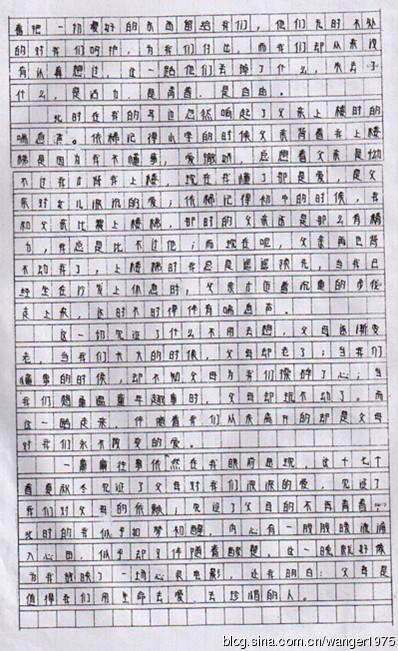 着把一切最好的东西留给我们，他们无时不处
的对我们呵护，为我们付出，而我们却从来没
有认真想过，这一路他们丢掉了什么，失去了
什么，是活力，是青春，是自由。
此时在我的耳边忽然响起了父亲上楼时的
喘息声。依稀记得小学的时候父亲背着我上楼
梯是因为我不懂事，爱撒娇，总想着父亲是
不过我口背我上楼，现在我懂了那是爱，是父
亲对女儿深沉的爱；依稀记得初中的时候，我
和父亲比赛上楼梯，那时的父亲还是那么有精
力，我总是比不过他；而现在呢，父亲再也背
不动我了，上楼梯时我总是遥遥领先，当我已
经坐在沙发上休息时，父亲才迈着沉重的步伐
走上来，这时不时得伴有喘息声。
这一切见证了什么不用去想，父母在渐变
老，当我们长大的时候，父母却老了；当我们
懂事的时候，却不知父母为我们操碎了心；当
我们想重温童年趣事时，父母却玩不动了。而
这一路走来，伴随着我们从未离开的却是父母
对我们永不改变的爱。
一幕幕往事依然在我眼前显现，这十七个
春夏秋冬见证了父母对我们浓浓的爱，见证了
我们对父母的依赖；见证了父母的不再青春。
此时的我似乎如梦初醒，内心有一股股暖流涌
入心田，似乎却又伴随着酸楚。这一晚就好像
为我放映了一场心灵电影，让我明白：父母是
值得我们用生命去爱，去珍惜的人。
blog.sina.com.cn/wanger1975